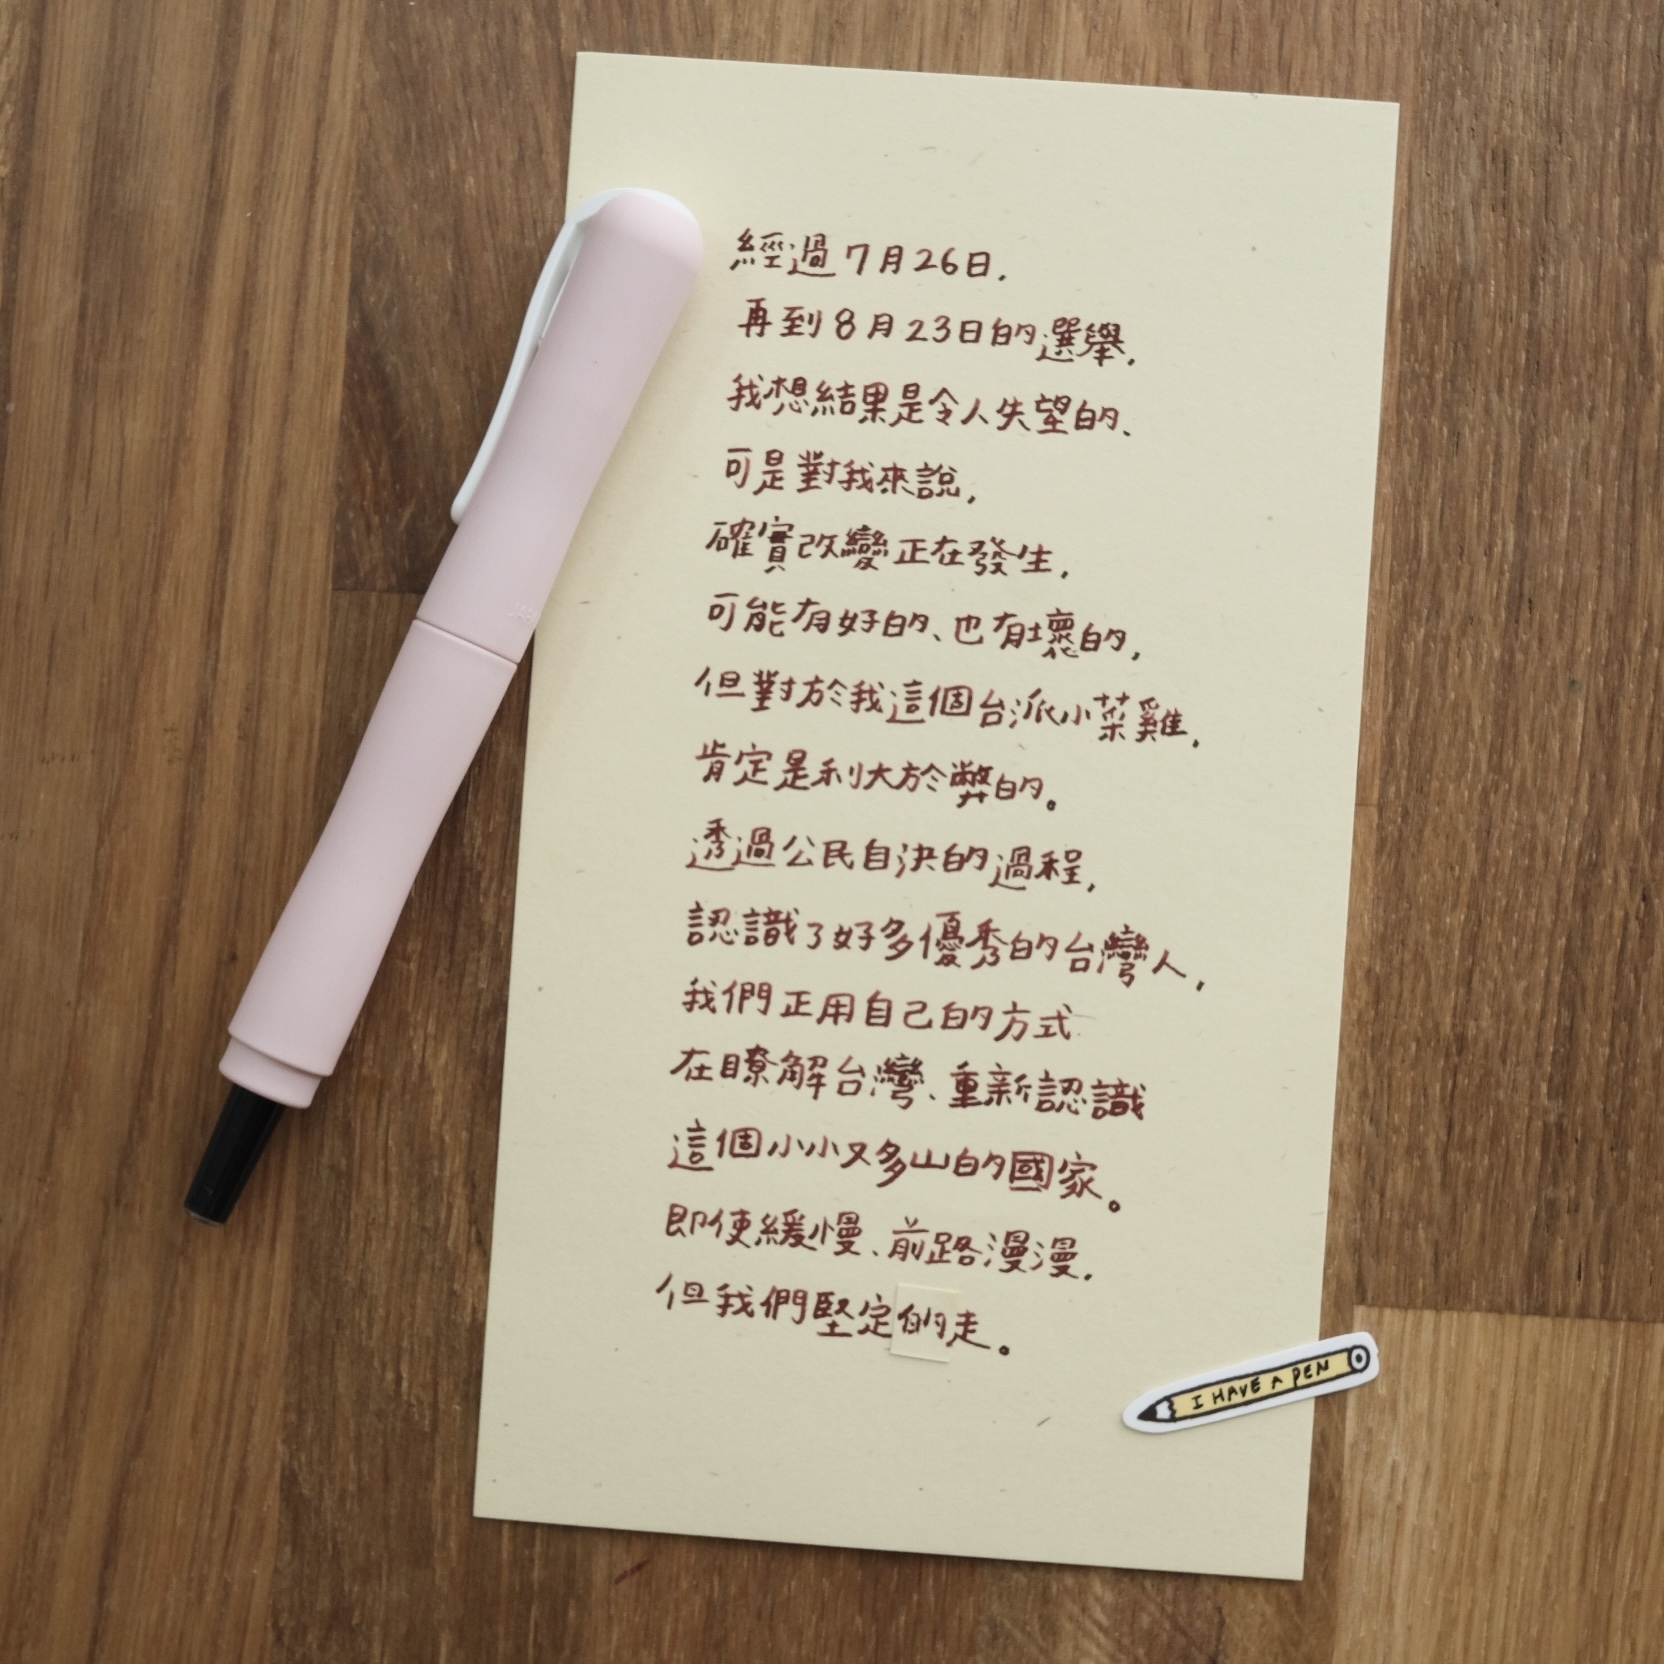 經過7月26日,
再到8月23日的選舉,
我想結果是令人失望的、
可是對我來說,
確實改變正在發生,
可能有好的、也有壞的,
但對於我這個台派小菜雞,
肯定是利大於弊的。
透過公民自決的過程,
認識了好多優秀的台灣人,
我們正用自己的方式
在瞭解台灣、重新認識
這個小小又多山的國家。
即使緩慢、前路漫漫,
但我們堅定的走。
I HAVE A PEN